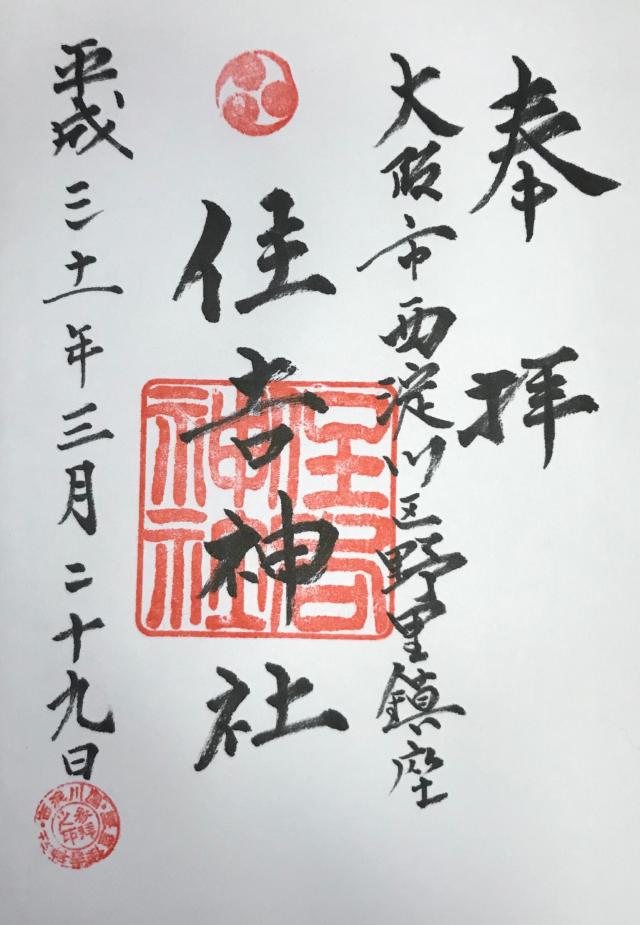 奉拝
大阪市西淀川区野里鎮座
住吉神社
住吉神社
平成三十一年三月二十九日